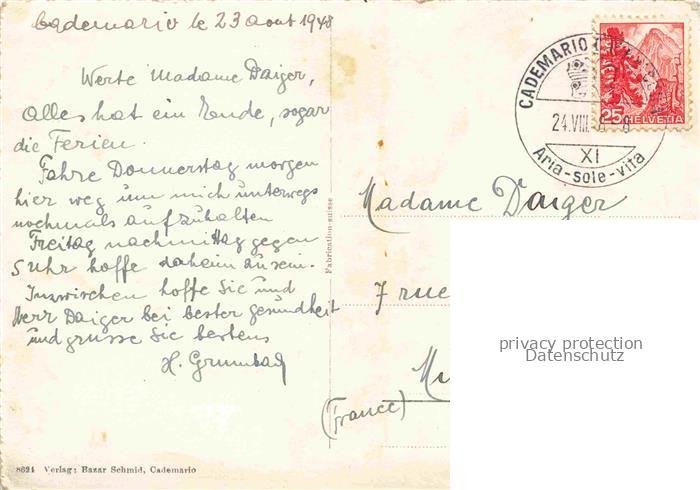 Cademario le 23 aout 1948
Werte Madame Daiger,
Alles hat ein Ende, sogar
die Ferien.
Fahre Donnerstag morgen
hier weg um mich unterwegs
nochmals aufzuhalten
Freitag nachmittag gegen
5 Uhr hoffe daheim zu sein.
Inzwischen hoffe Sie und
Herr Daiger bei bester gesundheit
und grüsse Sie bestens
H. Grumbach
8624 Verlag: Bazar Schmid, Cademario
Fabrication-suisse
CADEMARIO
24.VIII.
XI
Aria-sole-vita
25 HELVETIA
Madame Daiger
7 rue
(France)
privacy protection
Datenschutz